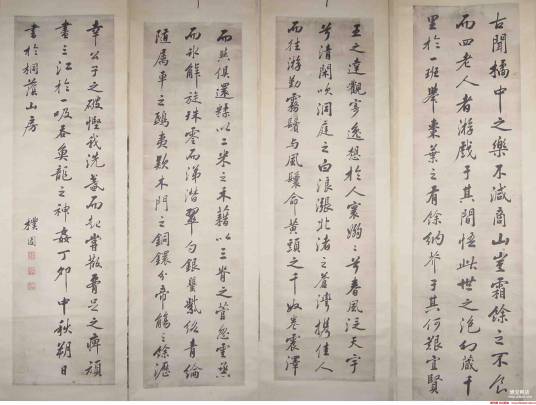 吾聞橘中之樂不減商山豈霜餘之不食
而四老人者游戲于其間悟此世之泡幻藏千
里於一班舉棗葉之有餘納芥子其何艱宜賢
王之達觀寄逸想於人寰嫋〻兮春風泛天宇
兮清閑吹洞庭之白浪漲北渚之蒼灣攜佳人
而往游勤霧鬢与風鬟命黃頭之千奴卷震澤
而與俱還糅以二米之禾藉以三脊之菅忽雲蒸
而氷解旋珠零而涕潸翠勺銀罌紫絡青綸
隨属車之鴟夷款木門之銅鐶分帝觴之餘瀝
幸公子之破慳我洗盞而起嘗散腰足之痺頑
盡三江於一吸吞魚龍之神姦丁卯中秋朔日
書於桐蔭山房
樸園